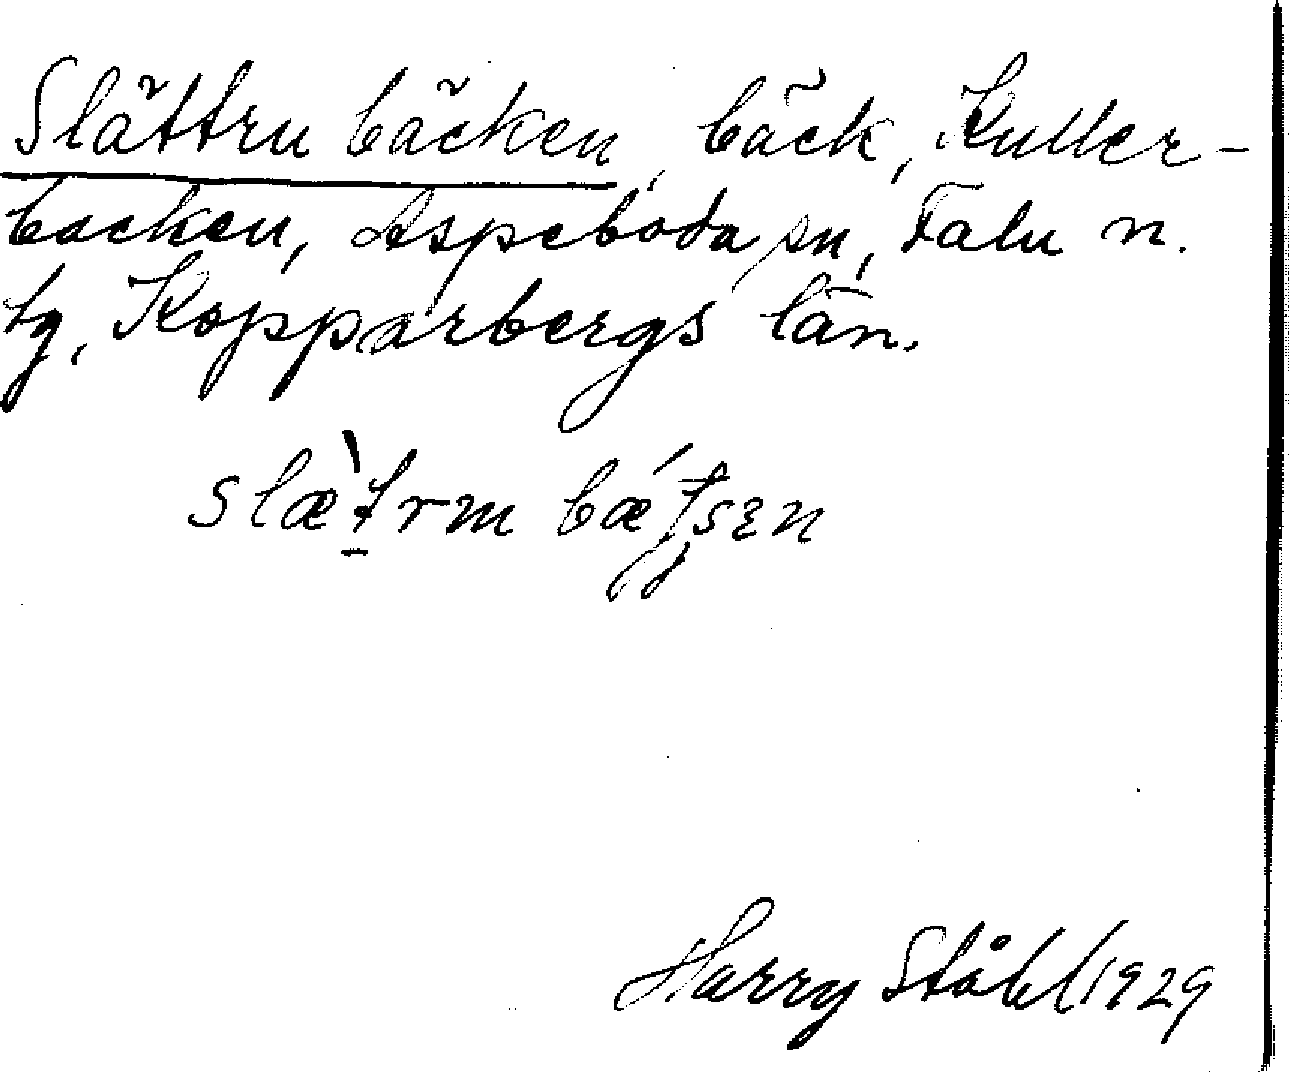 Slättru bäcken, bäck, Kuller-
backen, Aspeboda sn, Falu n.
tg, Kopparbergs län.
slæ̀trm bǽtsen
Harry Ståhl 1929